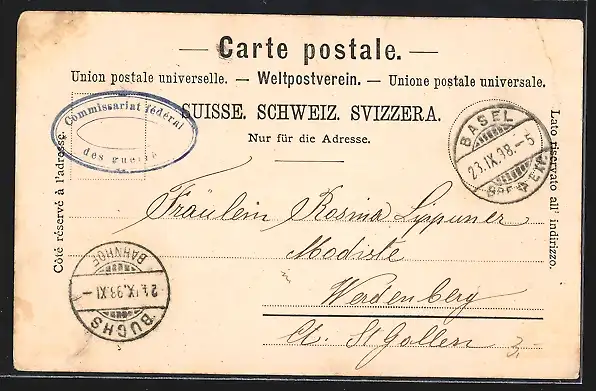 — Carte postale. —
Union postale universelle. — Weltpostverein. — Unione postale universale.
SUISSE. SCHWEIZ. SVIZZERA.
Nur für die Adresse.
Commissariat fédéral
des guerres
Côté réservé à l'adresse.
Lato riservato all' indirizzo.
BASEL
23.IX.98.-5
BRF. EXP.
Fräulein Rosina Lippuner
Modiste
Werdenberg
Ct. St Gallen
3,-
BUCHS
24.IX.98.XI-
BAHNHOF